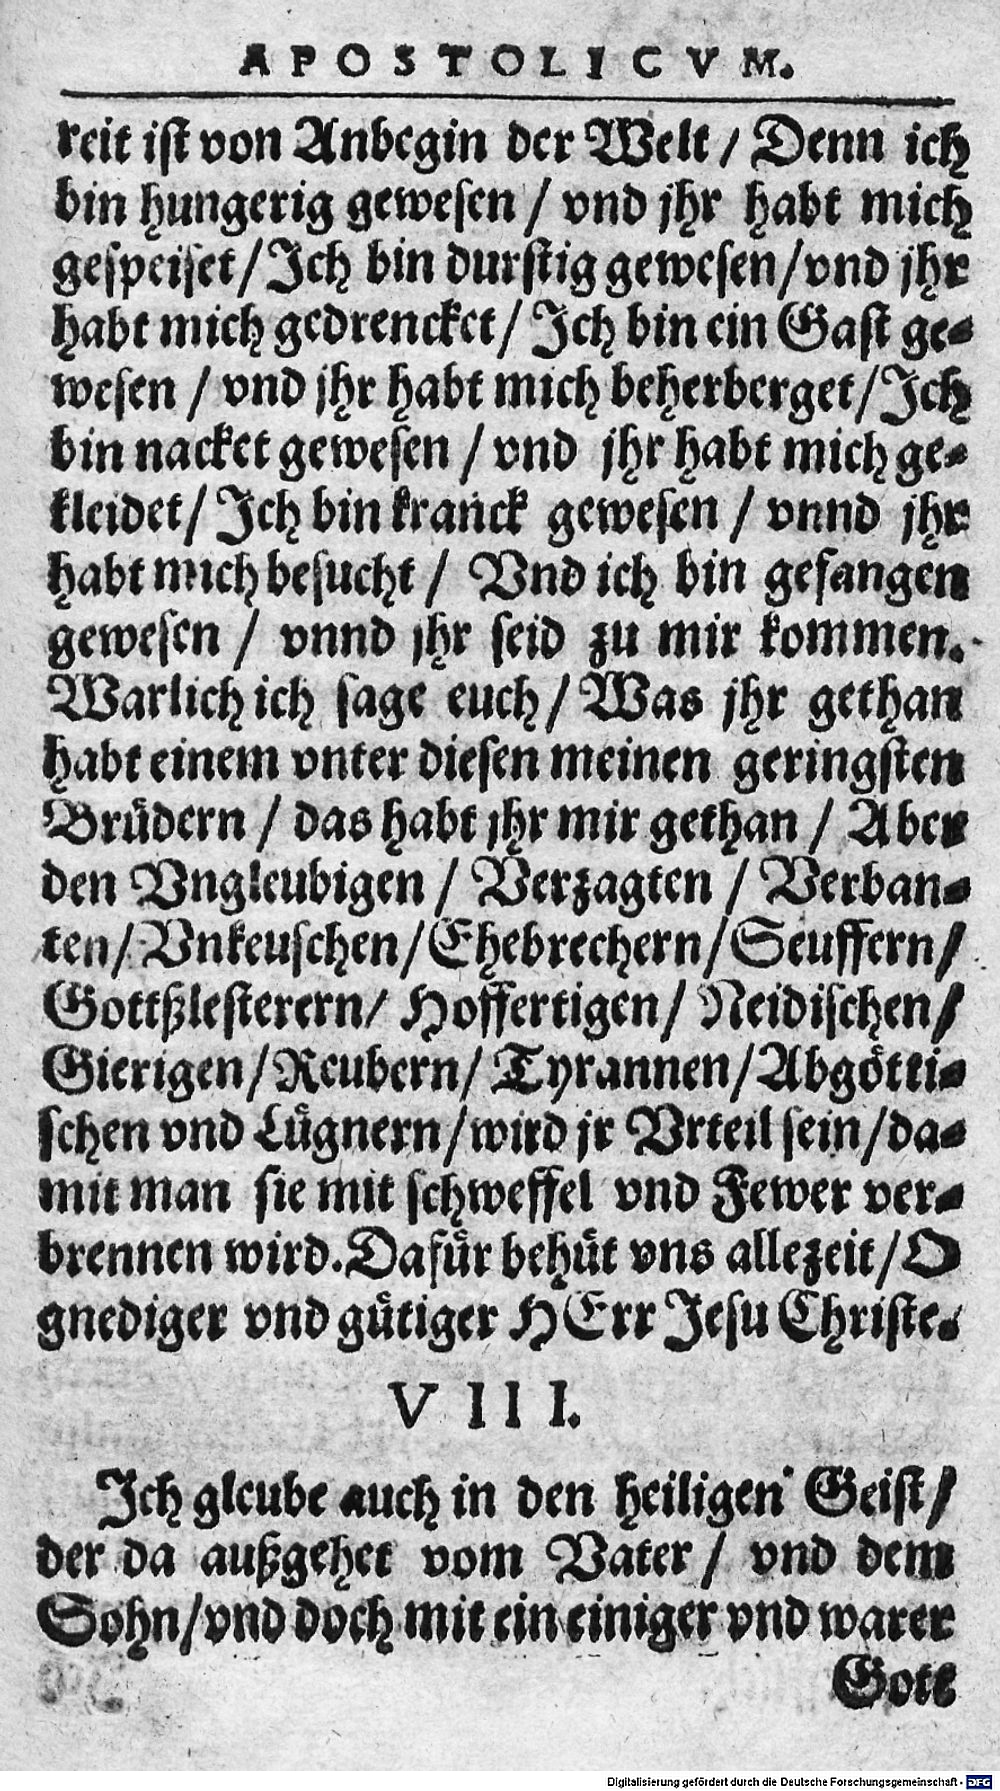 APOSTOLICVM.
reit ist von Anbegin der Welt / Denn ich
bin hungerig gewesen / vnd jhr habt mich
gespeiset / Ich bin durstig gewesen / vnd jhr
habt mich gedrencket / Ich bin ein Gast ge-
wesen / vnd jhr habt mich beherberget / Ich
bin nacket gewesen / vnd jhr habt mich ge-
kleidet / Ich bin kranck gewesen / vnnd jhr
habt mich besucht / Vnd ich bin gefangen
gewesen / vnnd jhr seid zu mir kommen.
Warlich ich sage euch / Was jhr gethan
habt einem vnter diesen meinen geringsten
Brüdern / das habt jhr mir gethan / Aber
den Vngleubigen / Verzagten / Verban-
ten / Vnkeuschen / Ehebrechern / Seuffern /
Gottßlesterern / Hoffertigen / Neidischen /
Gierigen / Reubern / Tyrannen / Abgötti-
schen vnd Lügnern / wird jr Vrteil sein / da-
mit man sie mit schweffel vnd Fewer ver-
brennen wird. Dafür behüt vns allezeit / O
gnediger vnd gütiger HErr Jesu Christe.
VIII.
Ich gleube auch in den heiligen Geist /
der da außgehet vom Vater / vnd dem
Sohn / vnd doch mit ein einiger vnd warer
Gott
Digitalisierung gefördert durch die Deutsche Forschungsgemeinschaft - DFG